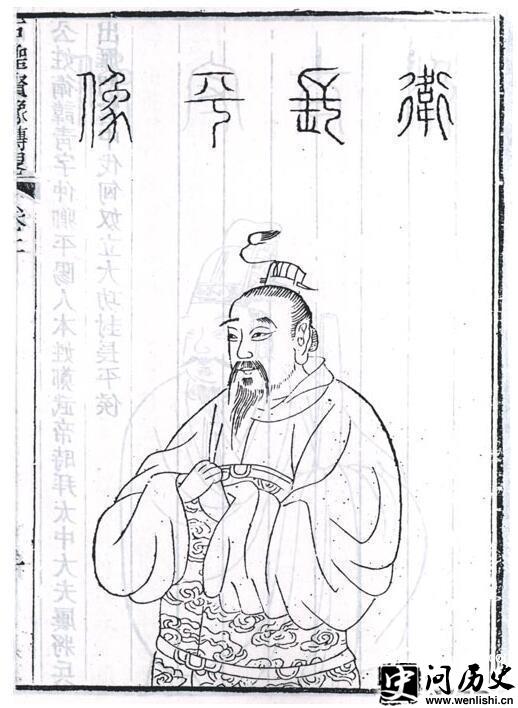 衛長平像
聖賢像傳畧
公姓衛諱青字仲卿平陽人本姓鄭武帝時拜太中大夫屢將兵
出 伐匈奴立大功封長平侯
问历史
www.wenlishi.com